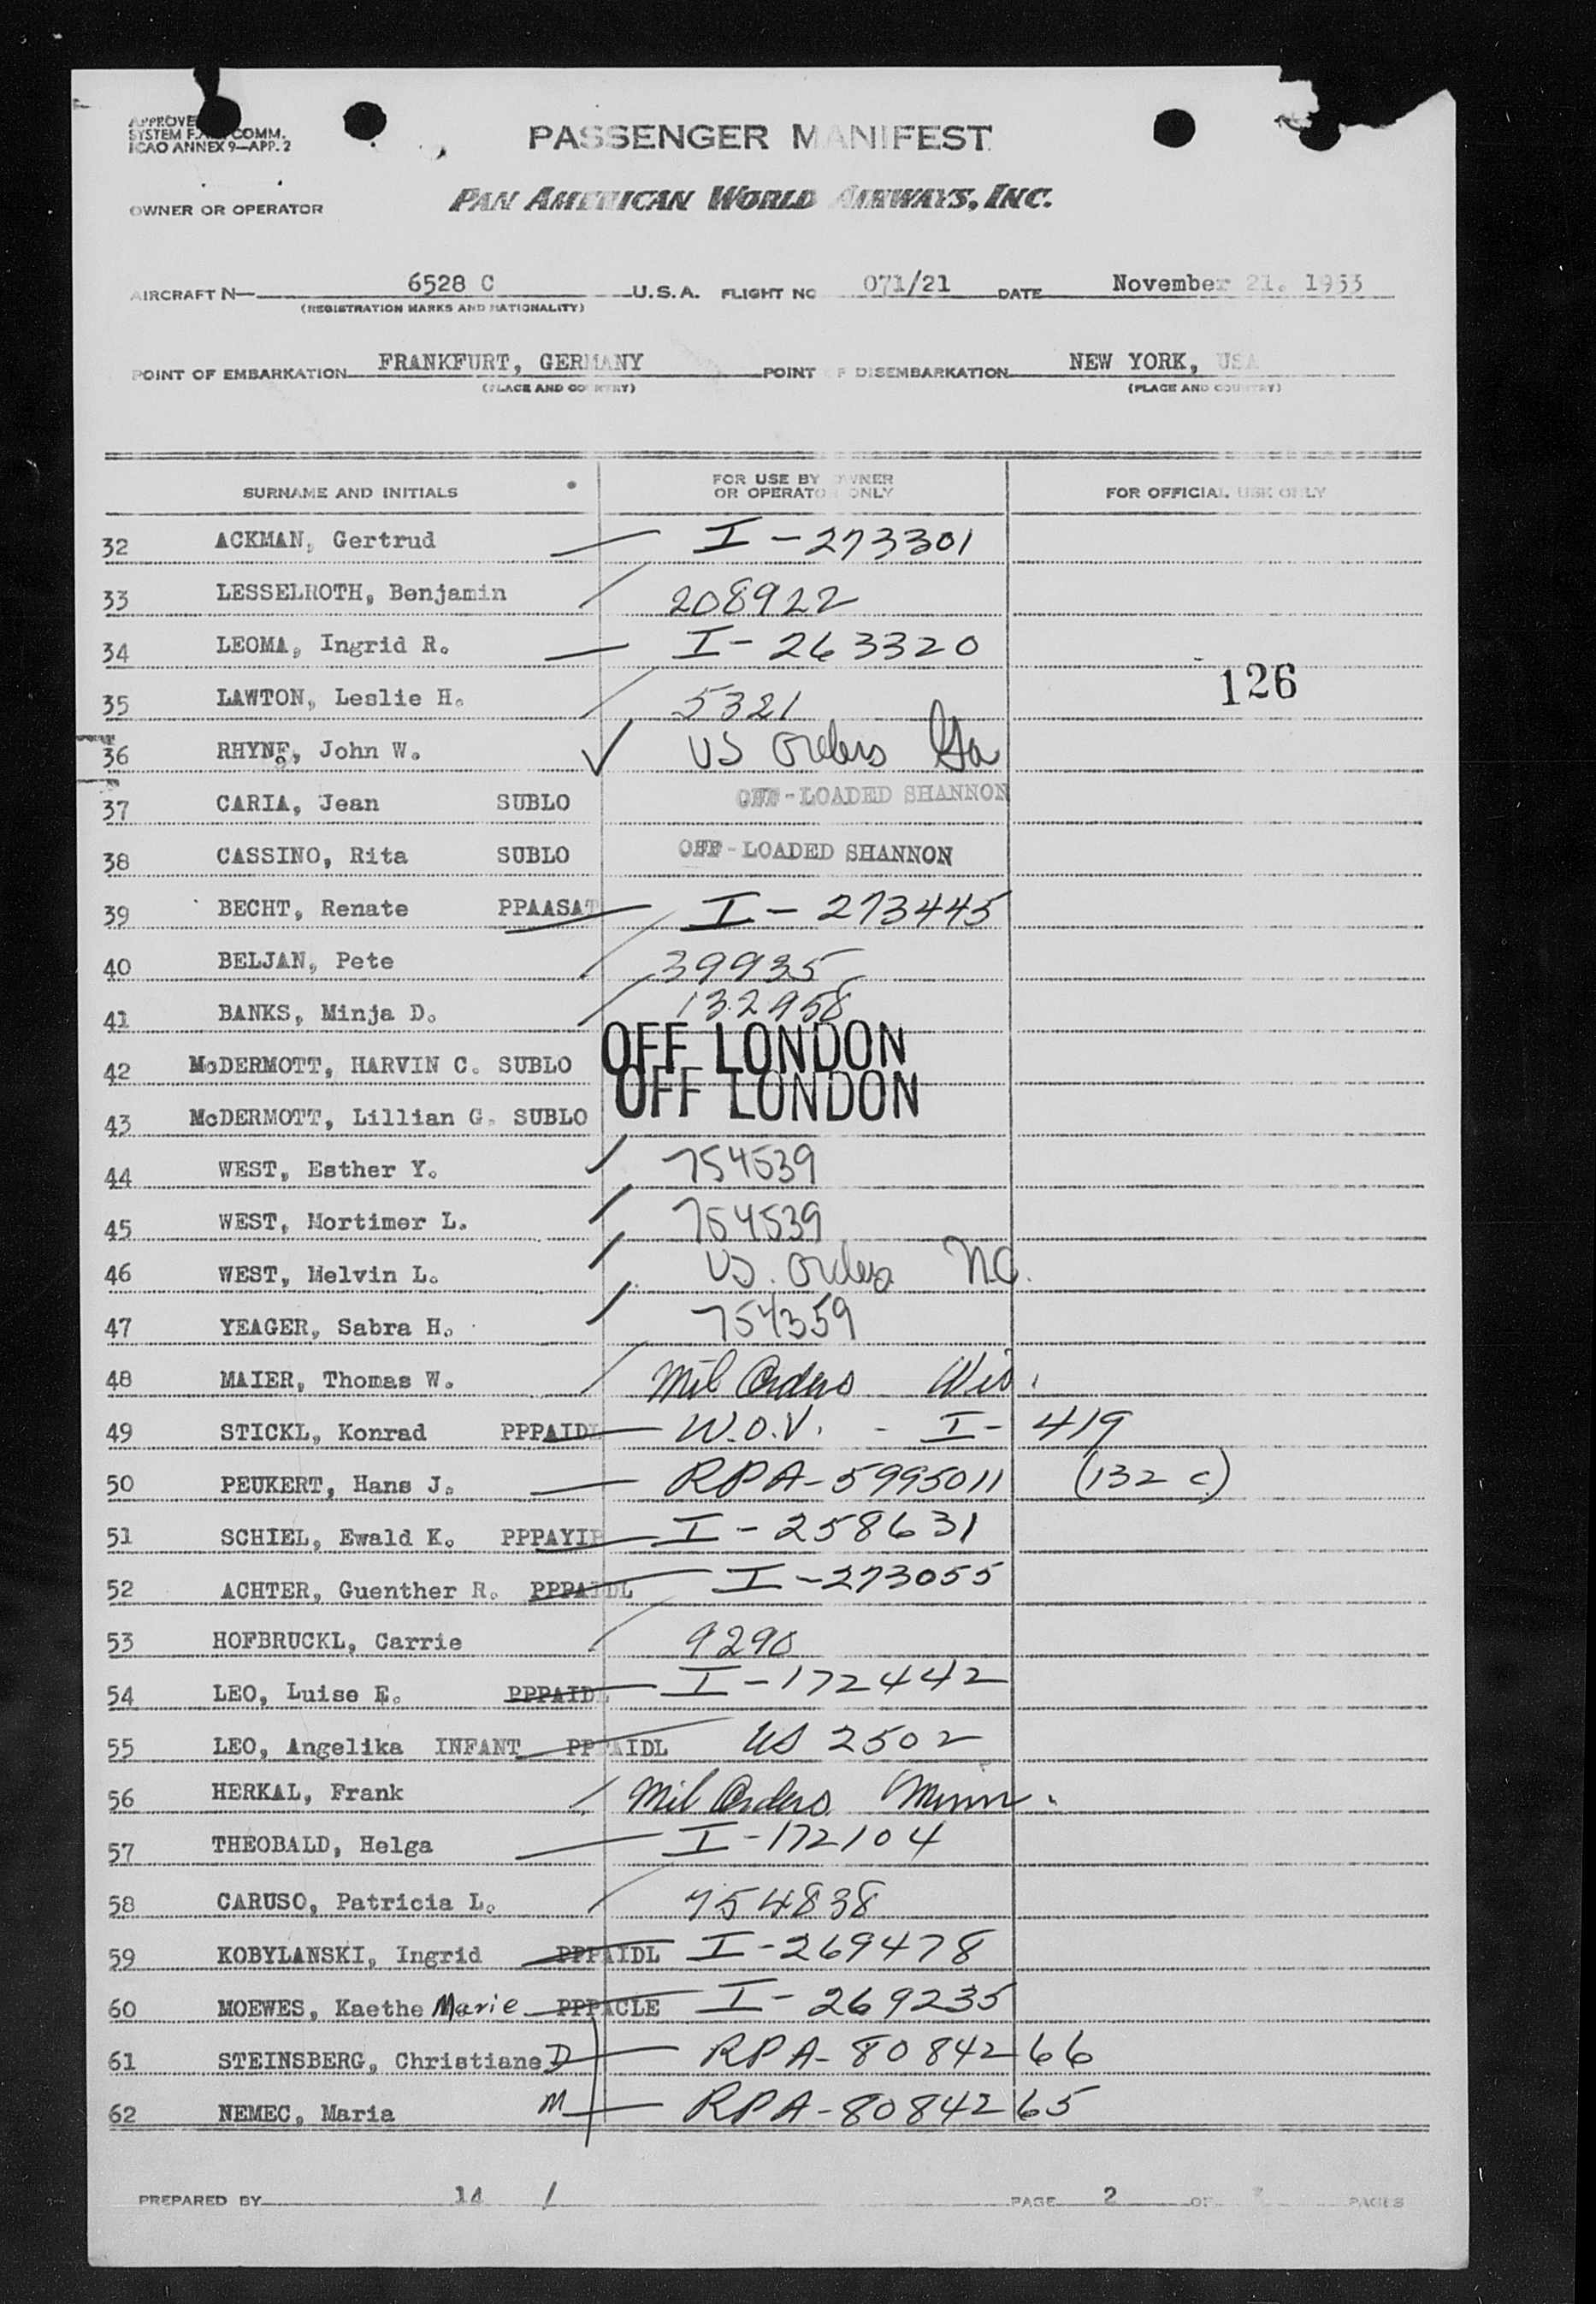 APPROVE
SYSTEM F. COMM.
ICAO ANNEX 9—APP. 2
PASSENGER MANIFEST
OWNER OR OPERATOR PAN AMERICAN WORLD AIRWAYS, INC.
AIRCRAFT N— 6528 C U.S.A. FLIGHT NO 071/21 DATE November 21. 1953
(REGISTRATION MARKS AND NATIONALITY)
POINT OF EMBARKATION FRANKFURT, GERMANY POINT OF DISEMBARKATION NEW YORK, USA
(PLACE AND COUNTRY) (PLACE AND COUNTRY)
SURNAME AND INITIALS FOR USE BY OWNER OR OPERATOR ONLY FOR OFFICIAL USE ONLY
32 ACKMAN, Gertrud — I-273301
33 LESSELROTH, Benjamin / 208922
34 LEOMA, Ingrid R. — I-263320
126
35 LAWTON, Leslie H. / 5321
36 RHYNE, John W. ✓ US Orders Ga
37 CARIA, Jean SUBLO OFF-LOADED SHANNON
38 CASSINO, Rita SUBLO OFF-LOADED SHANNON
39 BECHT, Renate PPAASAT — I-273445
40 BELJAN, Pete / 39935
41 BANKS, Minja D. / 132958
42 McDERMOTT, HARVIN C. SUBLO OFF LONDON
43 McDERMOTT, Lillian G. SUBLO OFF LONDON
44 WEST, Esther Y. / 754539
45 WEST, Mortimer L. / 754539
46 WEST, Melvin L. / US. Orders N.C.
47 YEAGER, Sabra H. / 754359
48 MAIER, Thomas W. / Mil Orders Wis.
49 STICKL, Konrad PPPAIDL — W.O.V. - I-419
50 PEUKERT, Hans J. — RPA-5995011 (132 c)
51 SCHIEL, Ewald K. PPPAYIP — I-258631
52 ACHTER, Guenther R. PPPAIDL — I-273055
53 HOFBRUCKL, Carrie / 9290
54 LEO, Luise E. PPPAIDL — I-172442
55 LEO, Angelika INFANT PPPAIDL US 2502
56 HERKAL, Frank / Mil Orders Minn.
57 THEOBALD, Helga — I-172104
58 CARUSO, Patricia L. / 754838
59 KOBYLANSKI, Ingrid PPPAIDL I-269478
60 MOEWES, Kaethe Marie PPPACLE I-269235
61 STEINSBERG, Christiane D — RPA-8084266
62 NEMEC, Maria M — RPA-8084265
PREPARED BY 14 / PAGE 2 OF PAGES